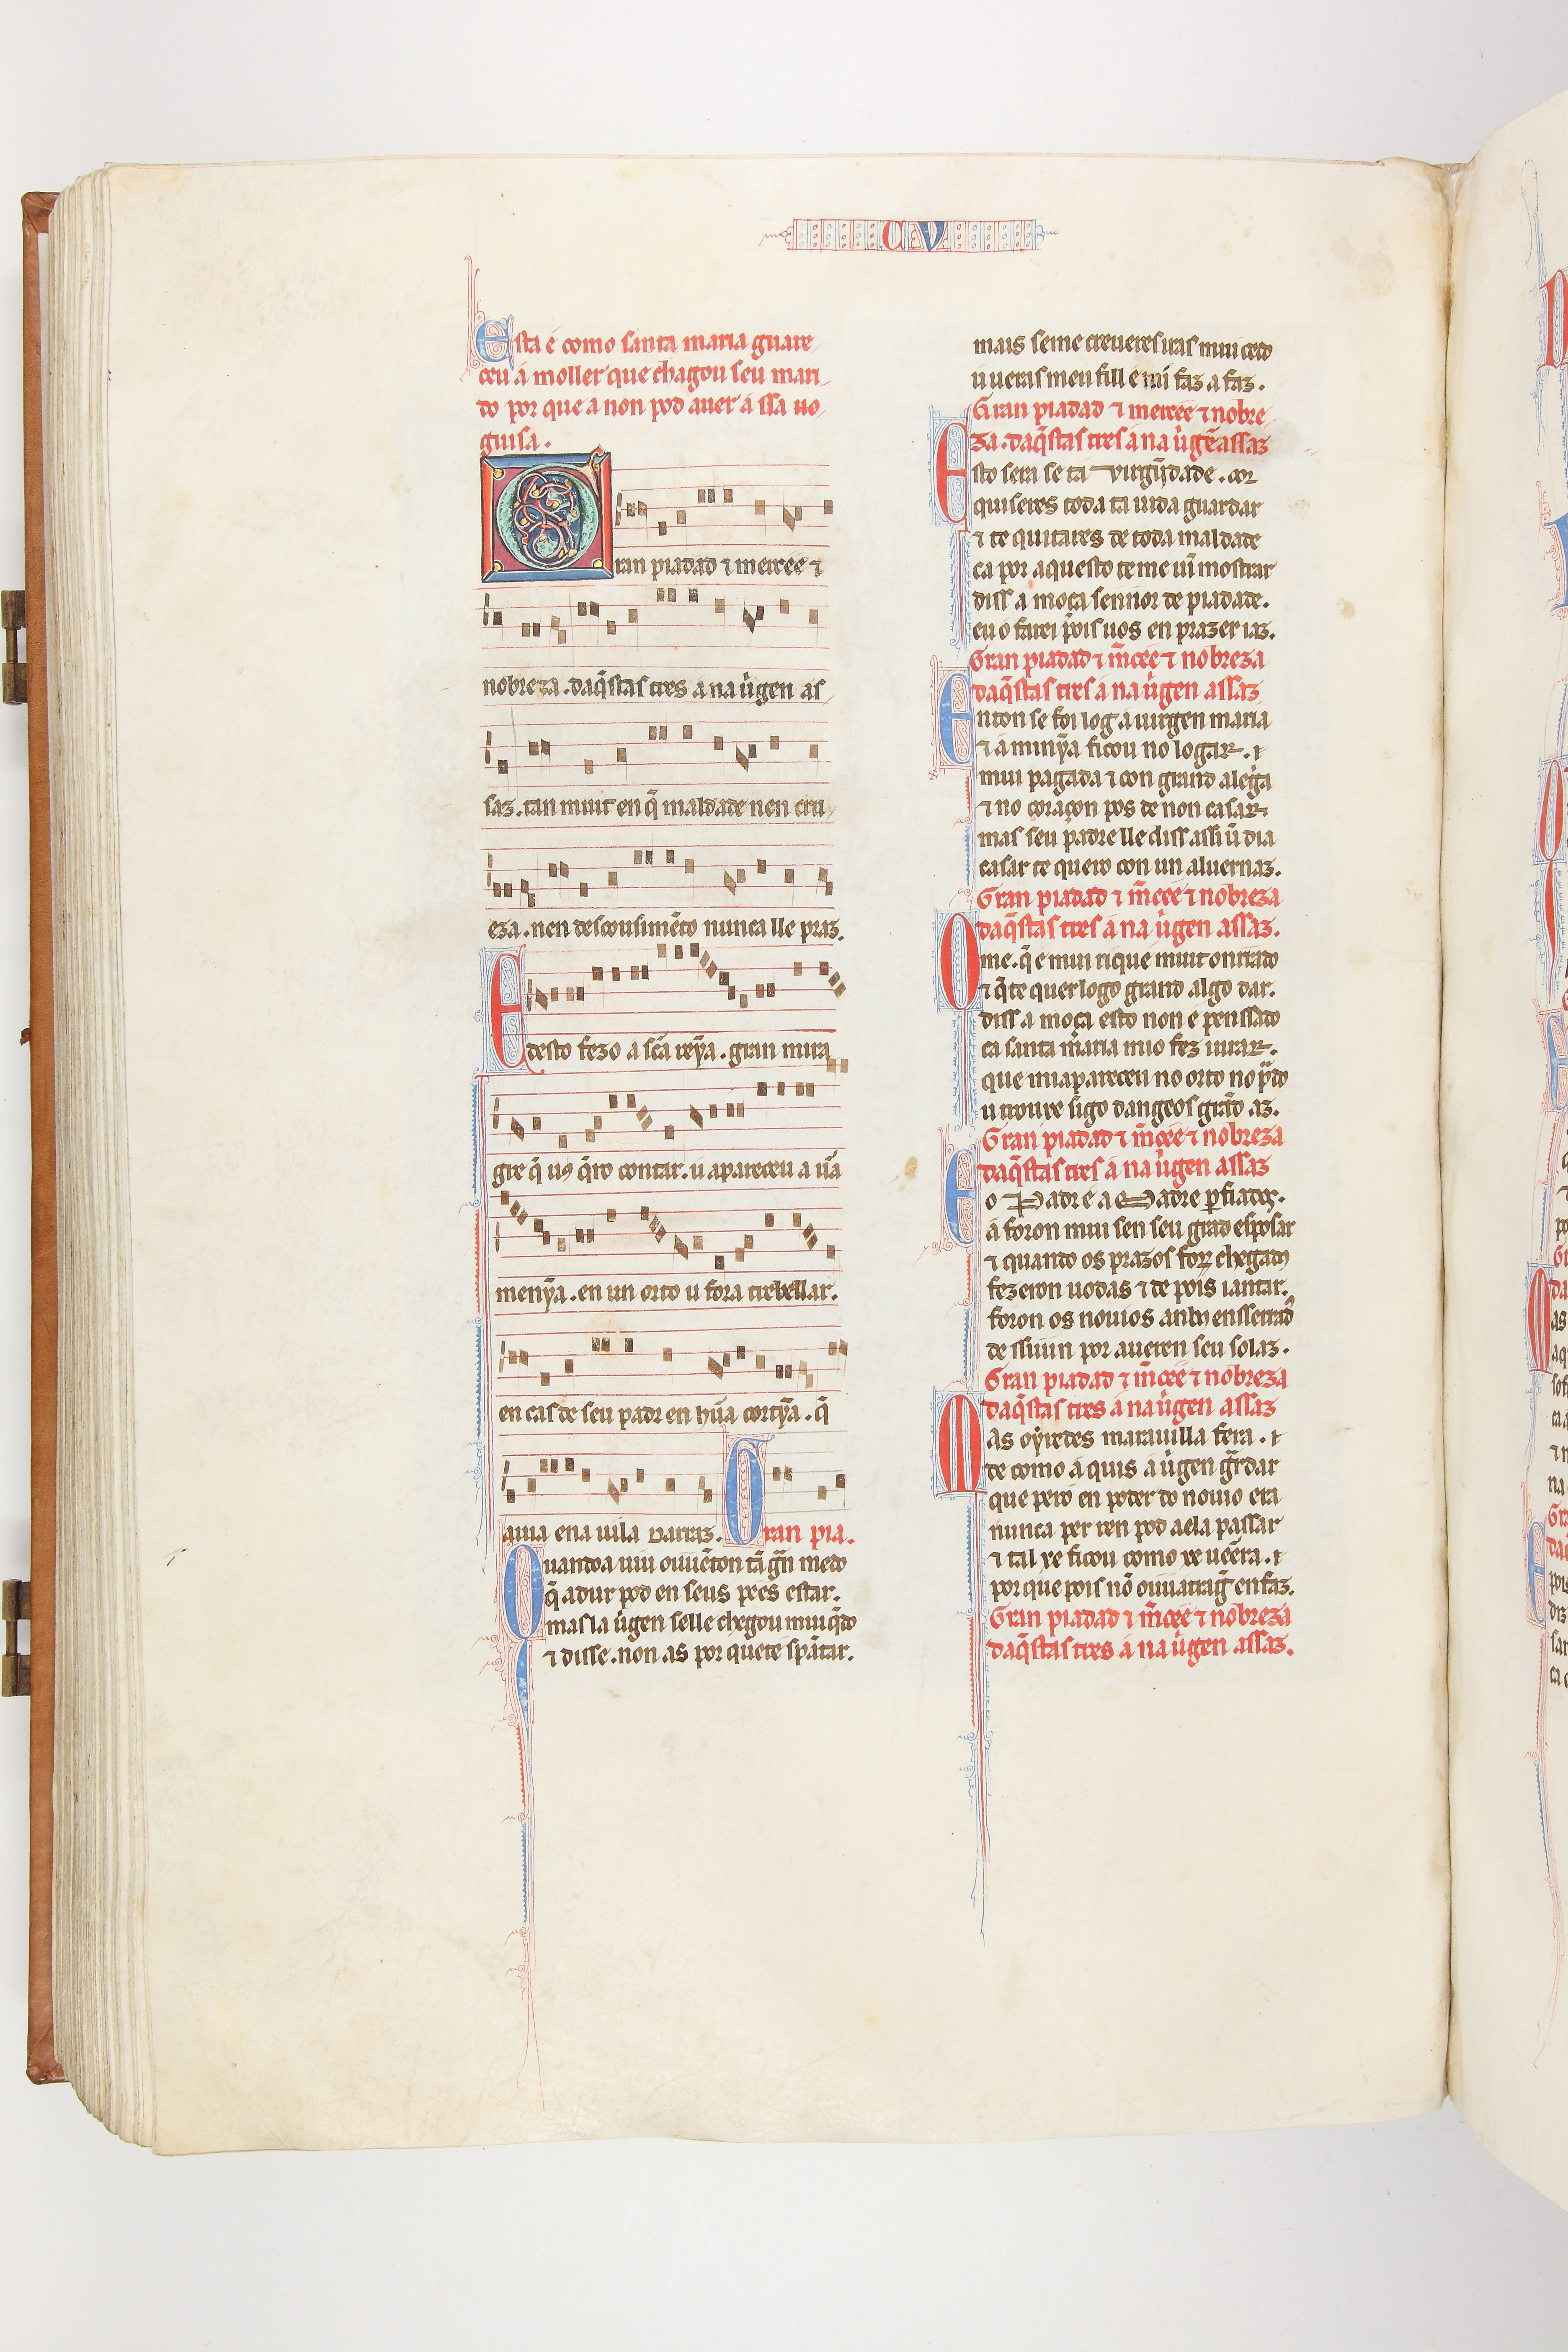 CV
Esta é como santa maria guare
ceu á moller que chagou seu mari
do por que a non pod auer á ssa uo
guisa.
Gran piadad ⁊ mercéé ⁊
nobreza.daq̃stas tres a na uígen as
saz.tan muit en q̃ maldade nen cru
eza.nen descousimẽto nunca lle praz.
E desto fezo a sc̃a reỹa.gran mira
gre q̃ uꝯ q̃ro contar.u apareceu a ũa
menỹa.en un orto u fora trebellar.
en cas de seu padr en hũa cortỹa.q̃
auia ena uila Darraz. Gran pia.
Quandoa uiu ouuẽton tã grã medo
q̃ adur pod en seus pees estar.
mas la uígen selle chegou mui q̃do
⁊ disse.non as por quete spãtar.
mais seme creueres uras mui cedo
u ueras meu fill e mi faz a faz.
Gran piadad ⁊ mercée ⁊ nobre
za.daq̃stas tres á na uígẽ assaz
Esto sera se ta virgỹdade.cor
quiseres toda ta uida guardar
⁊ te quitares de toda maldade
ca por aquesto te me uin̄ mostrar
diss a moça sennor de piadade.
eu o farei pois uos en prazer iaz.
Gran piadad ⁊ m̃cee ⁊ nobreza
daq̃stas tres á na uígen assaz
Enton se foi log á uirgen maria
⁊ á minỹa ficou no logar.⁊
mui pagada ⁊ con grand alegía
⁊ no coraçon pos de non casar
mas seu padre lle diss assi ũ dia
casar te quero con un aluernaz.
Gran piadad ⁊ m̃cee ⁊ nobreza
daq̃stas tres á na uígen assaz.
Ome.q̃ e mui rique muit onrrado
⁊ q̃te quer logo grand algo dar.
diss a moça esto non e penssado
ca santa maria mio fez iurar.
que mi apareceu no orto no p̃do
u trouxe sigo dangeos grãd az.
Gran piadad ⁊ m̃cee ⁊ nobreza
daq̃stas tres á na uígen assaz
E o Padre a Madre ꝑfiados.
á foron mui sen seu grad esposar
⁊ quando os prazos forõ chegadꝯ
fezeron uodas ⁊ de pois iantar.
foron os nouios anbꝯ enserrados
de ssuun por aueren seu solaz.
Gran piadad ⁊ m̃cee ⁊ nobreza
daq̃stas tres á na uígen assaz
Mas oyredes marauilla fera.⁊
de como á quis a uígen gardar
que pero en poder do nouio era
nunca per ren pod a ela passar
⁊ tal xe ficou como xe ueẽra.⁊
por que pois nõ ouuatrag̃ en faz.
Gran piadad ⁊ m̃cee ⁊ nobreza
daq̃stas tres á na uígen assaz.